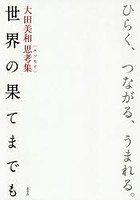 ひらく、つながる、うまれる。
大田美和思考集
世界の果てまでも